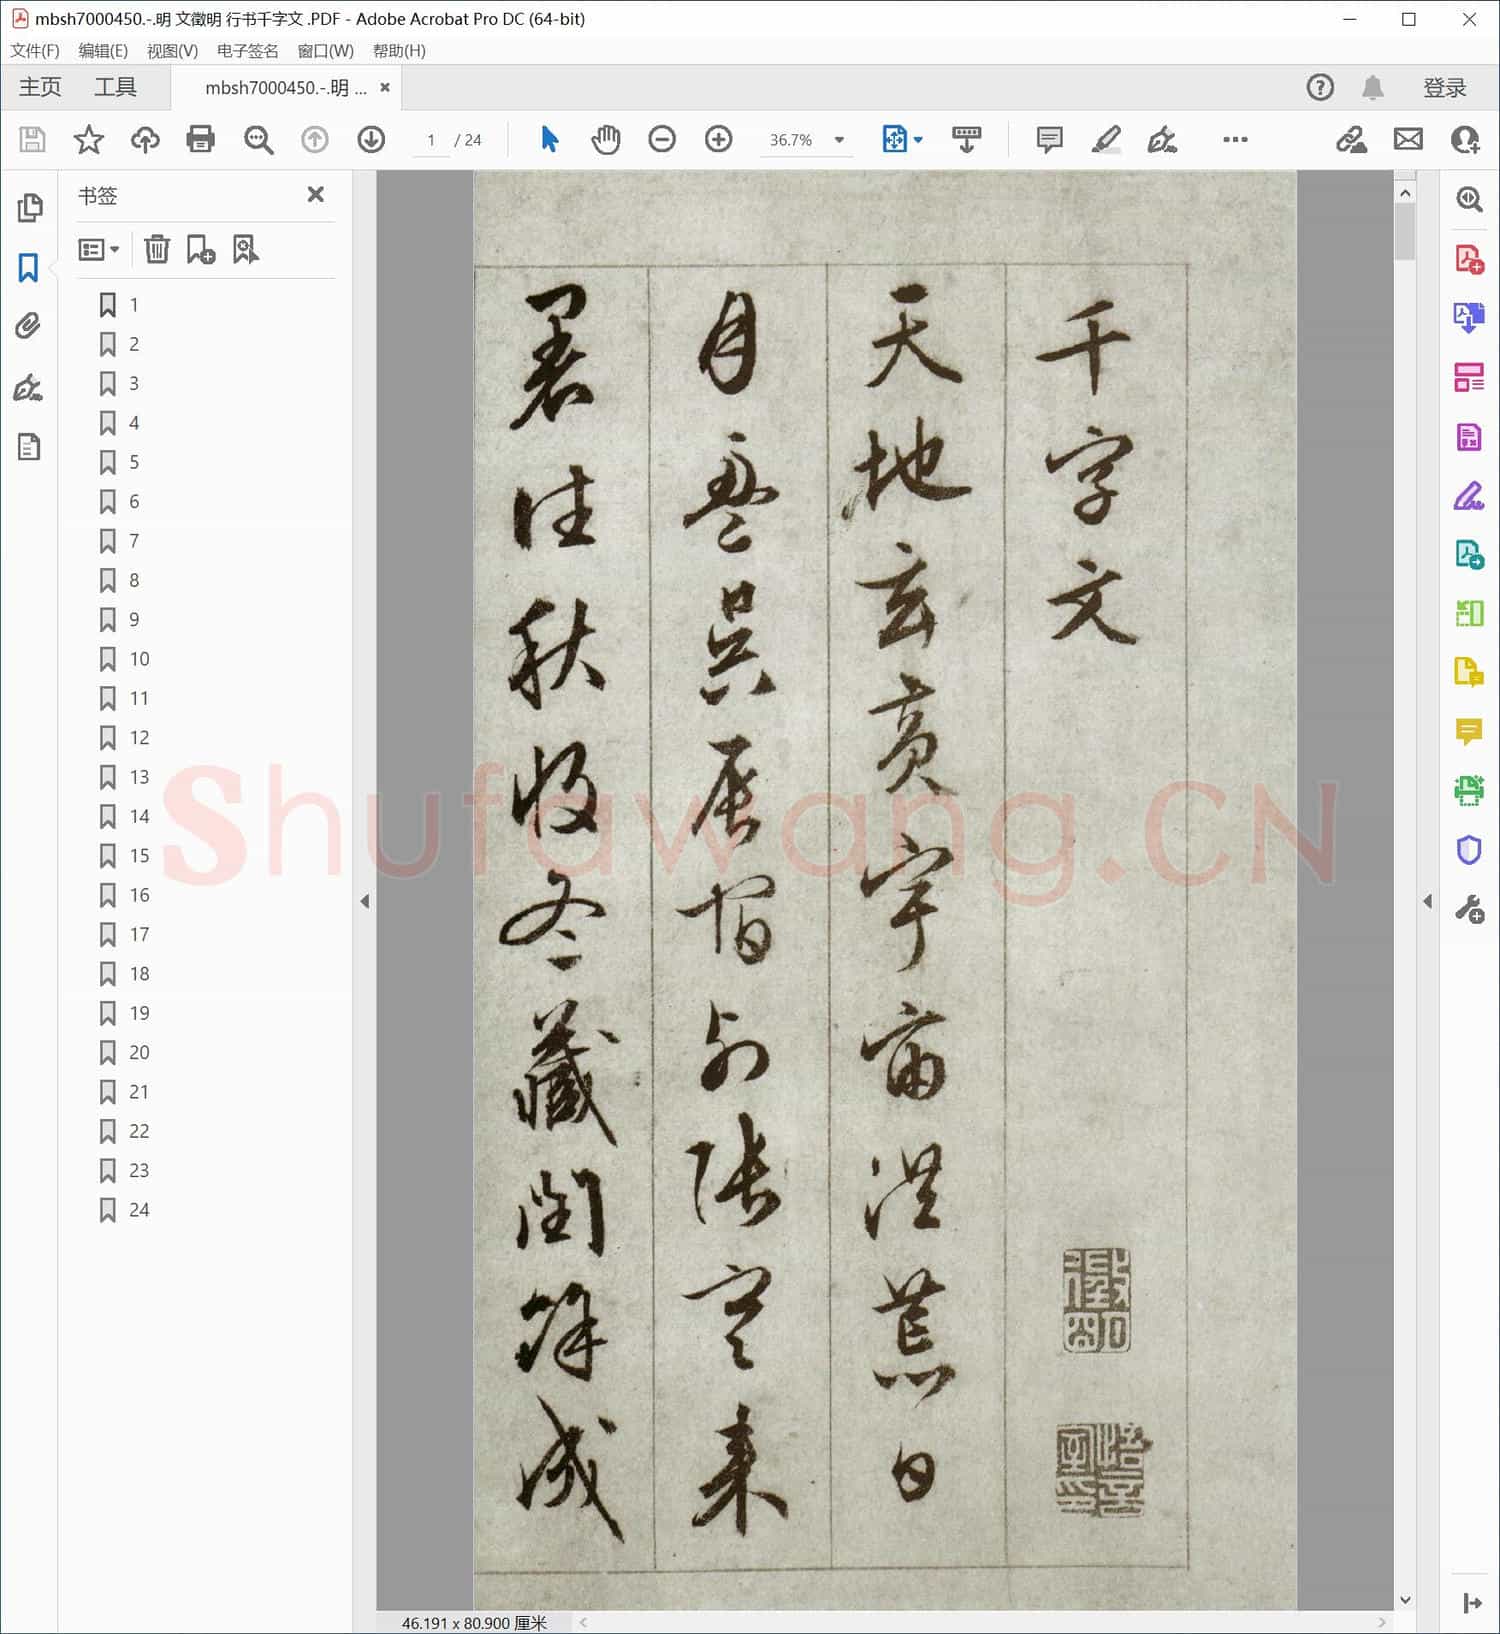 mbsh7000450.-.明 文徵明 行书千字文 .PDF - Adobe Acrobat Pro DC (64-bit)
文件(F) 编辑(E) 视图(V) 电子签名 窗口(W) 帮助(H)
主页 工具 mbsh7000450.-.明 ... 登录
1 / 24 36.7%
书签
1
2
3
4
5
6
7
8
9
10
11
12
13
14
15
16
17
18
19
20
21
22
23
24
千字文
徵明
悟言室印
天地玄黃宇宙洪荒日
月盈昃辰宿列張寒来
暑往秋收冬藏閏餘成
Shufawang.CN
46.191 x 80.900 厘米